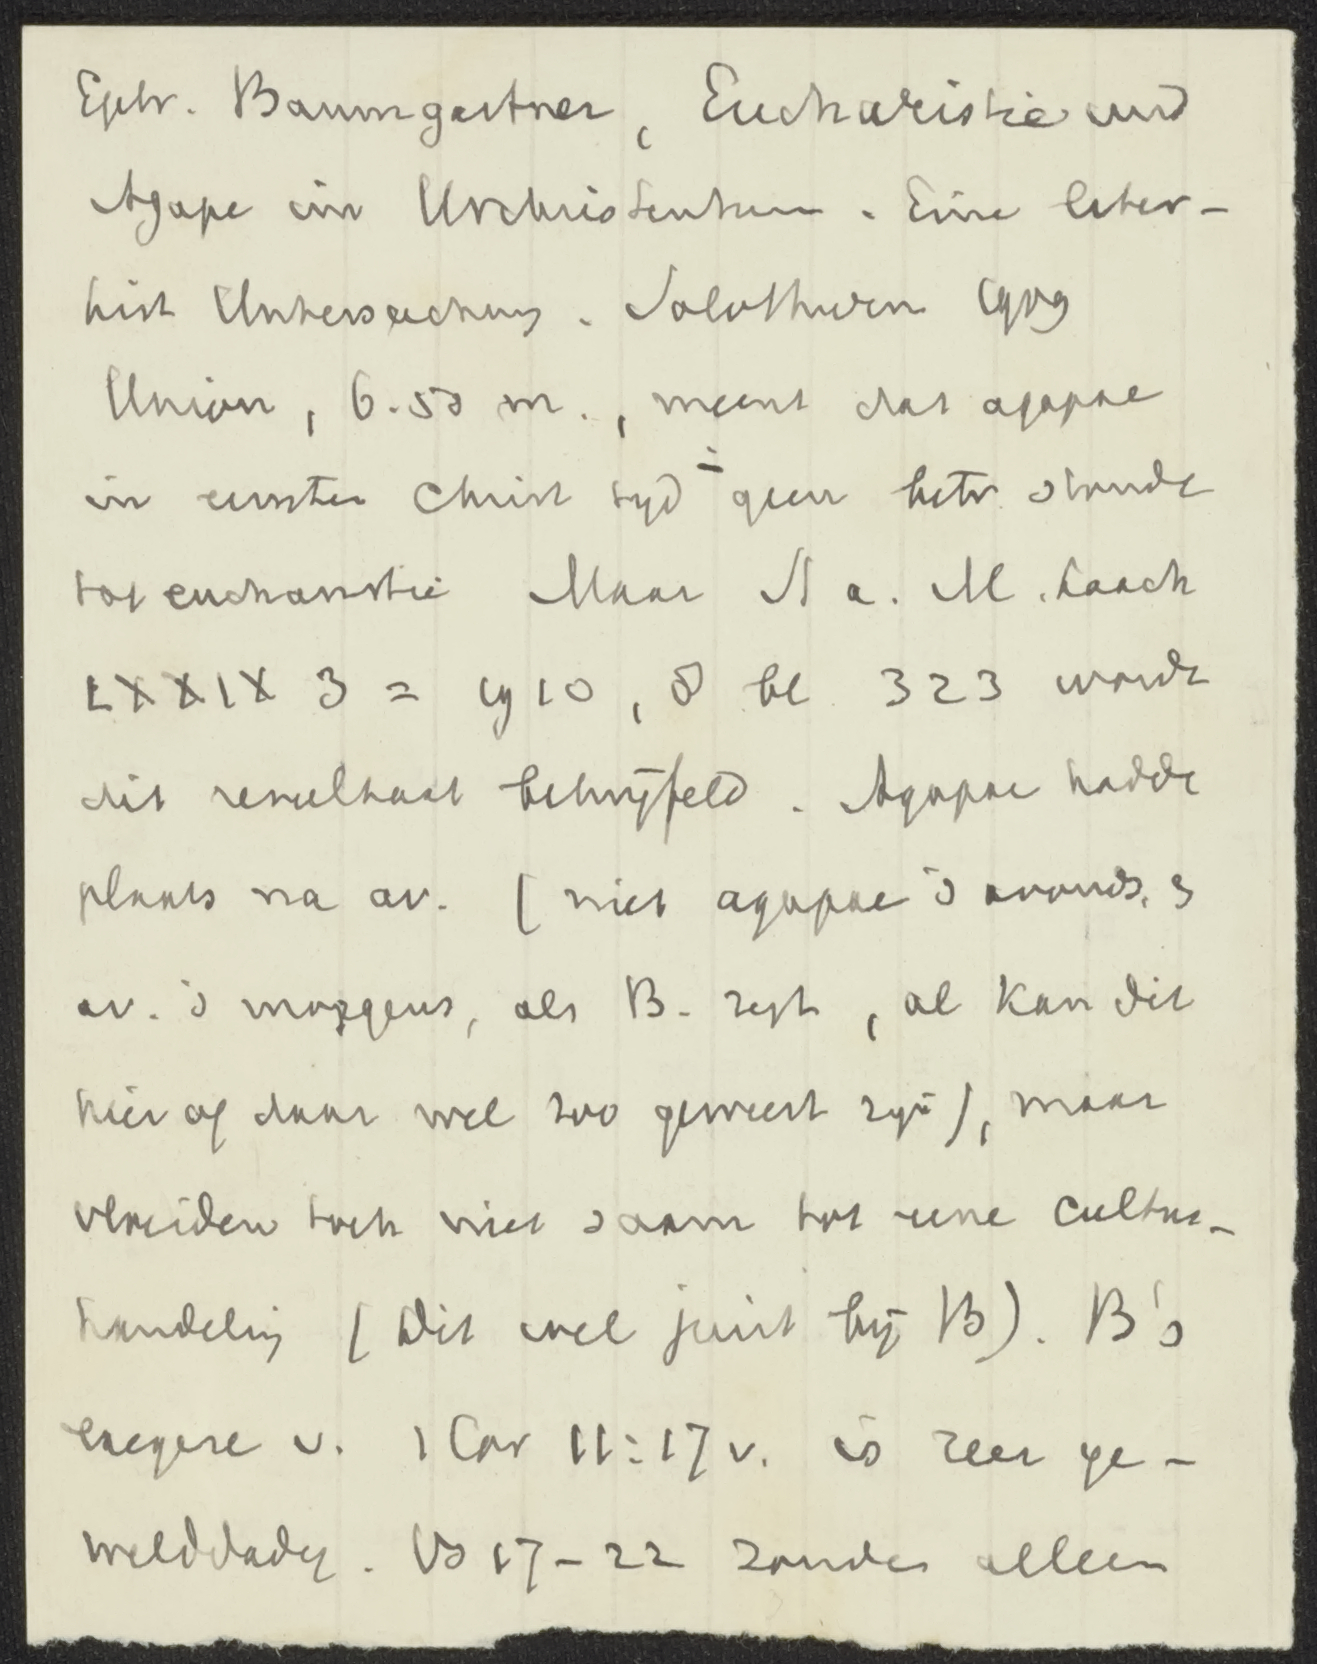 Ephr. Baumgartner, Eucharistie und
Agape im Urchristentum. Eine liter-
hist Untersuchung. Solothurn 1909
Union, 6.50 m., meent dat agapae
in eerste Christ tyd geen betr. stonde
tot eucharistie Maar St a. M. Laach
LXXIX 3 = 1910, 8 bl 323 wordt
dit resultaat betwijfeld. Agapae hadde
plaats na av. (niet agapae 's avonds, &
av. 's morgens, als B. zegt, al kan dit
hier of daar wel zoo geweest zijn), maar
vloeiden toch niet saam tot eene cultus-
handeling (Dit wel juist bij B). B's
exegese v. 1 Cor 11:17 v. is zeer ge-
welddadig. Vs 17-22 zouden alleen